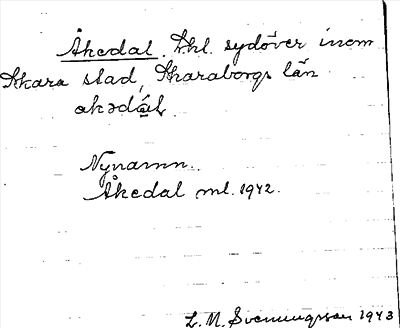 Åkedal. Lhl. sydöver inom
Skara stad, Skaraborgs län
akədál.
Nynamn.
Åkedal ml. 1942.
L. M. Svenungsson 1943